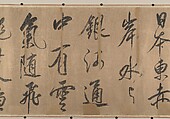 日本東赤
岸水與
銀河通
中有雲
氣隨飛